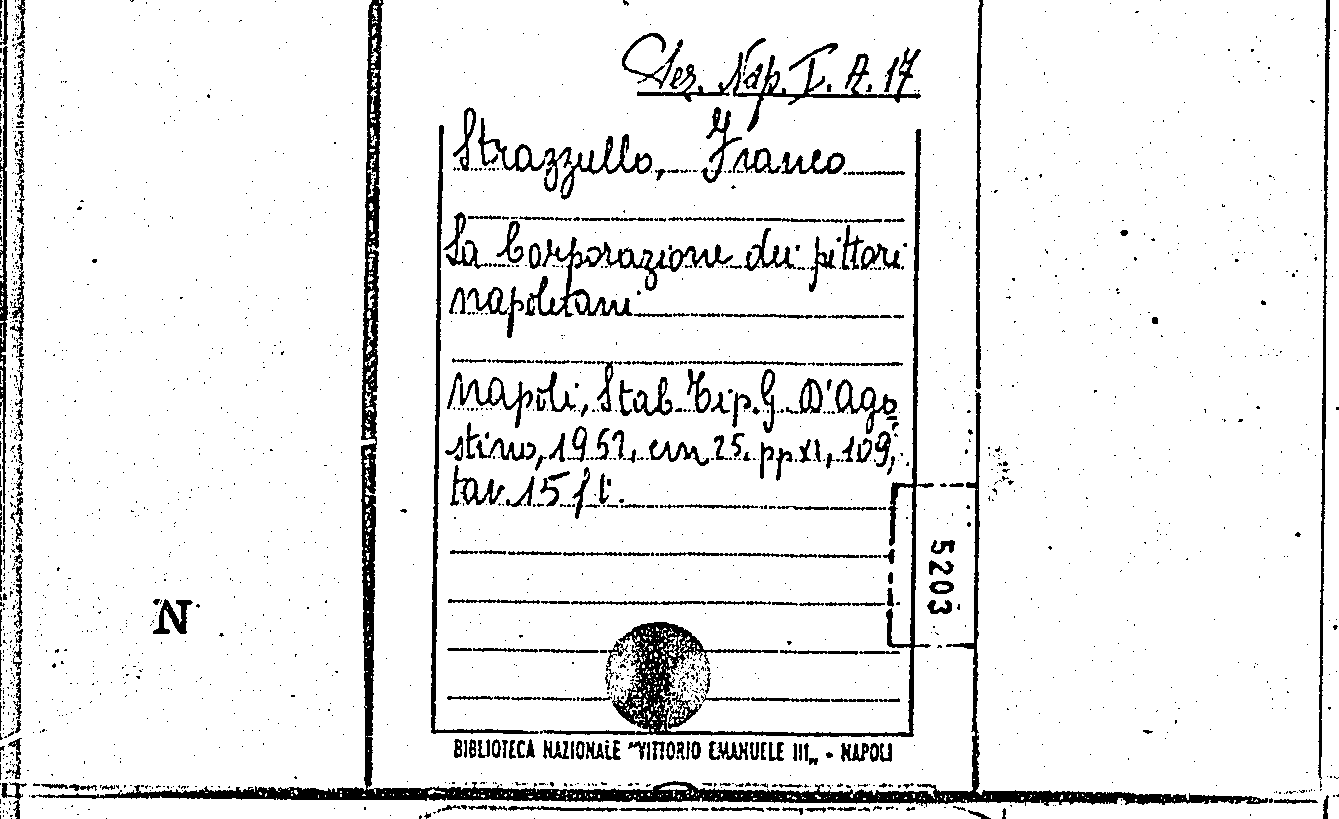 Sez. Nap. I. A. 17
Strazzullo, Franco
La Corporazione dei pittori
napoletani
Napoli, Stab. Tip. G. D'Ago
stino, 1962, cm 25. pp XI, 109,
tav. 15 f t.
5203
N
BIBLIOTECA NAZIONALE "VITTORIO EMANUELE III„ - NAPOLI